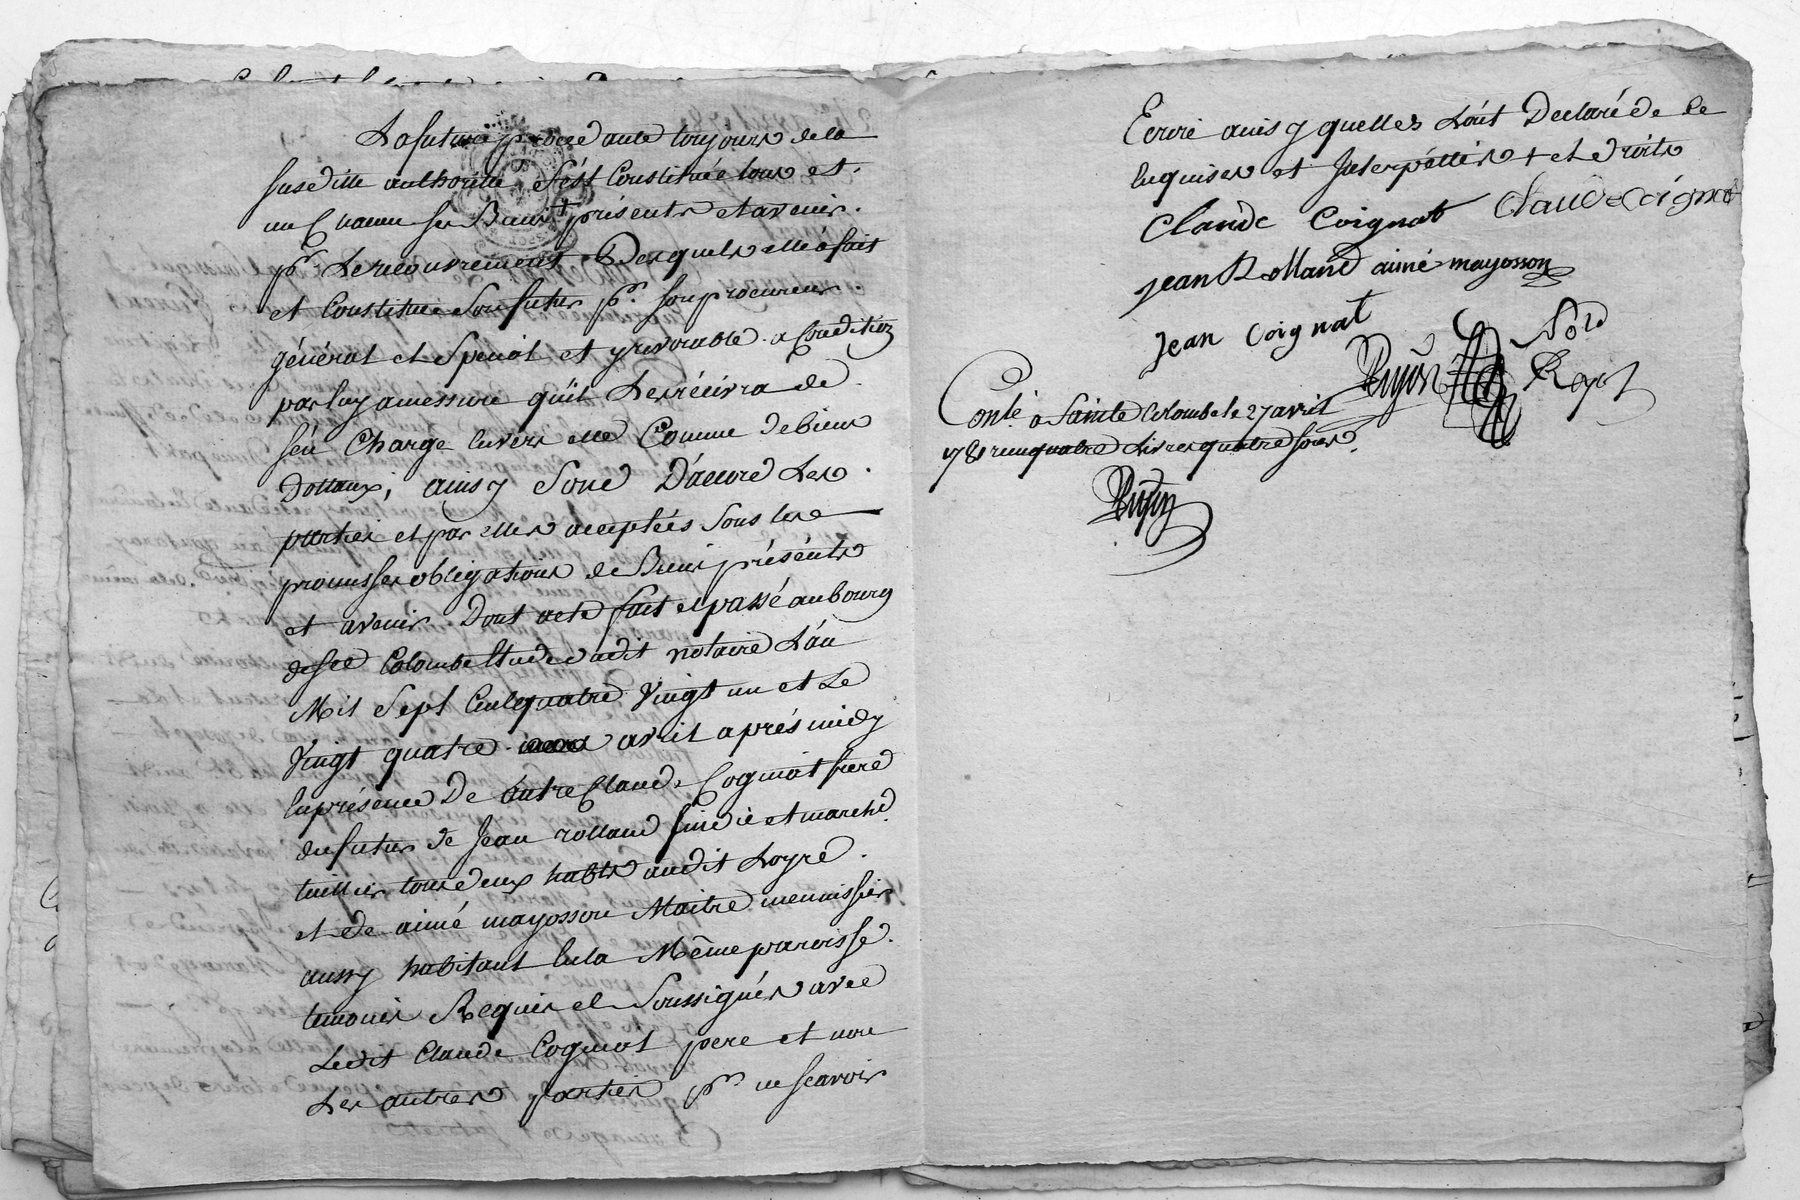 La future procedante toujours de la
susditte authorité s'est Constituée tous et
un Chacun ses Biens présents et avenir
pr. Le recouvrement Desquels elle a fait
et Constitué Son futur pr. son procureur
général et Spécial et yrevocable a Condition
par luy amessure qu'il Les récévra de
s'én Charge envers elle Comme de biens
Dottaux, ainsy Sont D'accord Les
parties et par elles acceptées Sous les
promisses obligations de Biens présénts
et avenir Dont acte fait et passé au bourg
de Ste Colombe Etude dudit notaire L'an
Mil Sept Cent quatre Vingt un et Le
Vingt quatre avril aprés midy
En présence De autre Claude Cogniat frere
du futur de Jean rolland sindic et march'd
tuillier tous deux habts audit Loyre
et de aimé mayosson Maitre menuissier
aussy habitant En la Même paroisse
temoins Requis et Soussignés avec
Ledit Claude Cogniat pere et non
Les autres parties pr. ne scavoir
Ecrire ainsy quelles L'ont Declaré de Ce
Enquises et Interpéllés + et droits
Claude Coignat Claude Coignat
jean Rolland aimé mayosson
jean Coignat
Conlé a Sainte Colombe le 27 avril
1781 reçu quatre Livres quatre sous